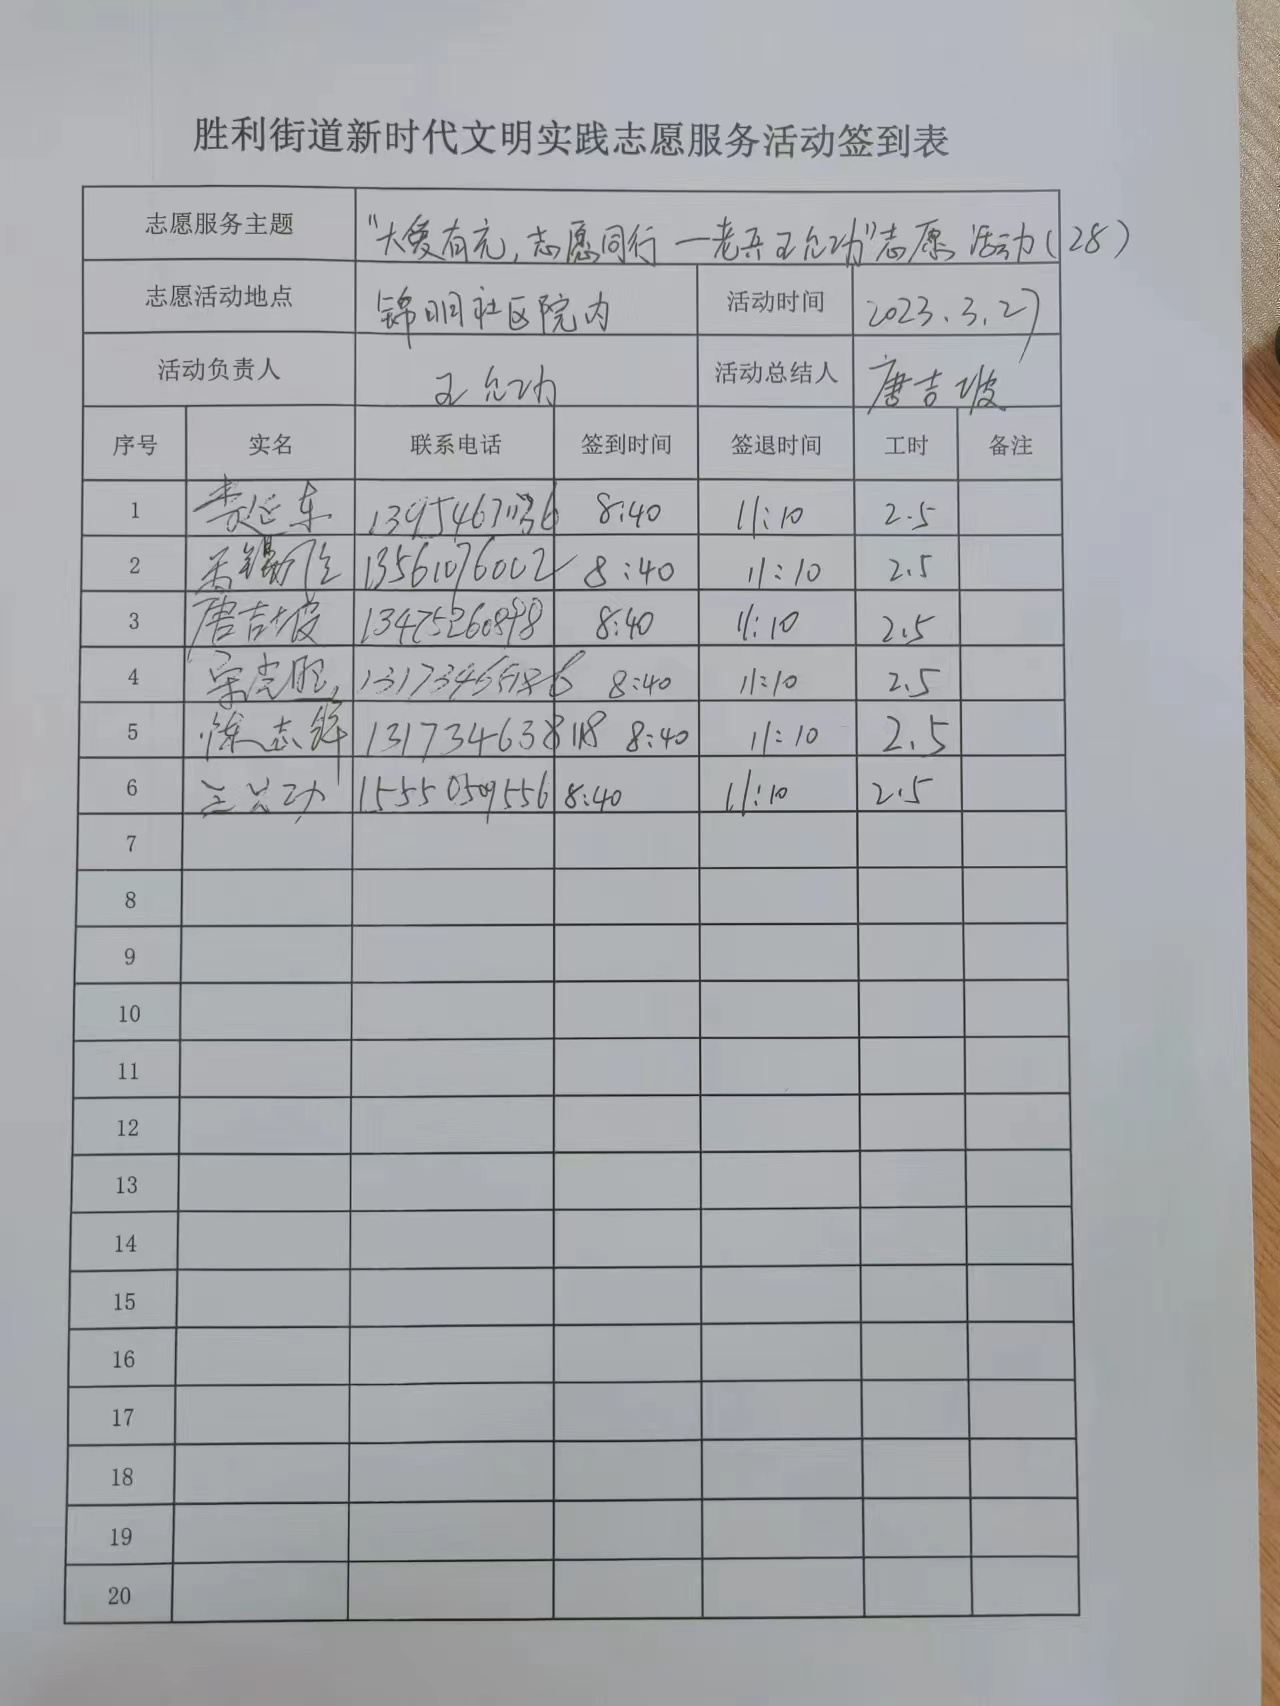 胜利街道新时代文明实践志愿服务活动签到表
志愿服务主题 "大爱有充,志愿同行 一老兵王允功"志愿活动(28)
志愿活动地点 锦明社区院内 活动时间 2023.3.27
活动负责人 王允功 活动总结人 唐吉坡
序号 实名 联系电话 签到时间 签退时间 工时 备注
1 8:40 11:10 2.5
2 13561076002 8:40 11:10 2.5
3 唐吉坡 13475260898 8:40 11:10 2.5
4 8:40 11:10 2.5
5 8:40 11:10 2.5
6 王允功 15550509556 8:40 11:10 2.5
7
8
9
10
11
12
13
14
15
16
17
18
19
20